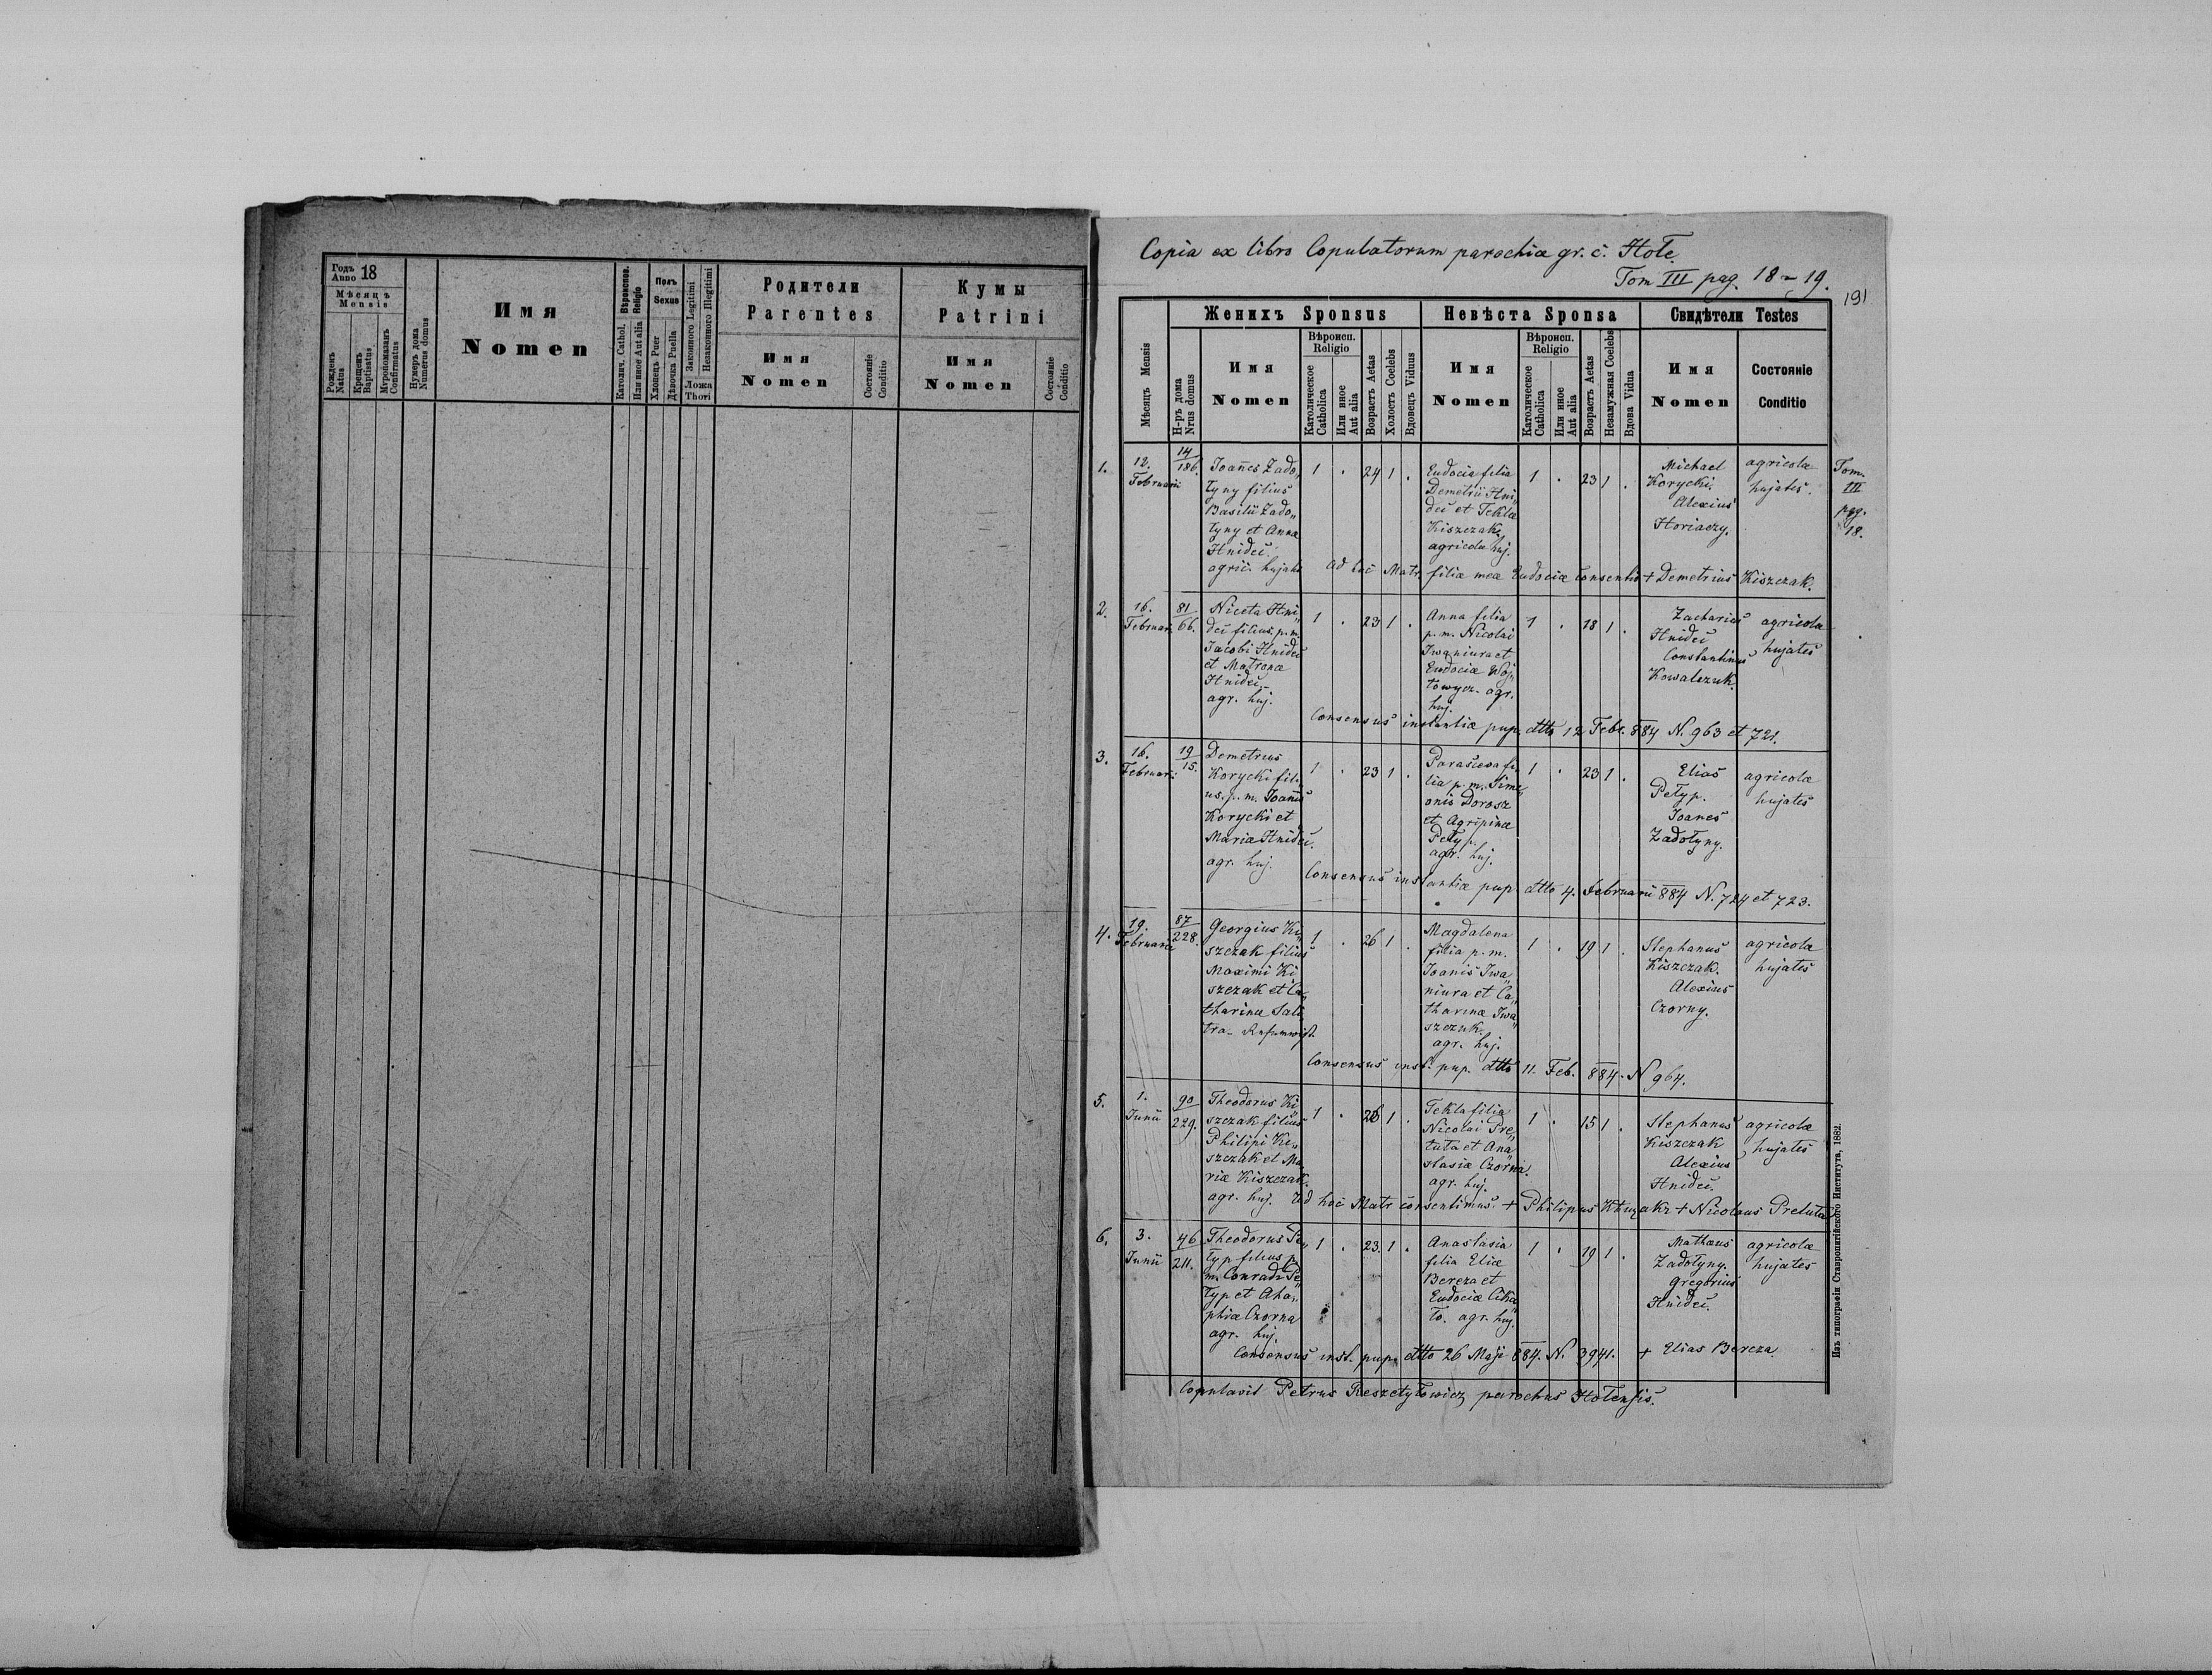 Годъ Anno 18
Мѣсяцъ
Mensis
Рожденъ Natus
Крещенъ Baptisatus
Мѵропомазанъ Confirmatus
Нумеръ дома Numerus domus
Имя
Nomen
Вѣроиспов. Religio
Католич. Cathol.
Или иное Aut alia
Полъ
Sexus
Хлопецъ Puer
Дѣвочка Puella
Законного Legitimi
Незаконного Illegitimi
Ложа
Thori
Родители
Parentes
Имя
Nomen
Состояніе
Conditio
Кумы
Patrini
Имя
Nomen
Состояніе
Conditio
Copia ex libro Copulatorum parochiæ gr. c. Hołe.
Tom III pag. 18-19.
191
Мѣсяцъ Mensis
Н-ръ дома
Nrus domus
Женихъ Sponsus
Имя
Nomen
Вѣроисп.
Religio
Католическое
Catholica
Или иное
Aut alia
Возрастъ Aetas
Холостъ Coelebs
Вдовецъ Viduus
Невѣста Sponsa
Имя
Nomen
Вѣроисп.
Religio
Католическое
Catholica
Или иное
Aut alia
Возрастъ Aetas
Незамужная Coelebs
Вдова Vidua
Свидѣтели Testes
Имя
Nomen
Состояніе
Conditio
1.
12.
Februarii
14
186.
Joanes Zado„
łyny filius
Basilii Zado„
łyny et Anna
Hnideć.
agric. hujates
1 . 24 1 .
Eudocia filia
Demetrii Hni„
deć et Tekla
Kiszczak,
agricolæ huj.
1 . 23 1 .
Michael
Korycki.
Alexius
Horiaczy.
agricolæ
hujates.
Tom.
III
pag.
18.
ad hoc Matr. filiæ meæ Eudociæ consentio + Demetrius Kiszczak.
2.
16.
Februarii
81
66.
Niceta Hni„
deć filius p. m.
Jacobi Hnideć
et Matrona
Hnideć
agr. huj.
1 . 23 1 .
Anna filia
p. m. Nicolai
Iwaniura et
Eudociæ Woj„
towycz. agr.
huj.
1 . 18 1 .
Zacharias
Hnideć
Constantinus
Kowalczuk.
agricolæ
hujates
Consensus instantiæ pup. dtto 12 Febr. 884 N. 963 et 721.
3.
16.
Februarii
19
15.
Demetrius
Korycki fili„
us. p. m. Joanis
Korycki et
Maria Hnideć.
agr. huj.
1 . 23 1 .
Parasceva fi„
lia p. m. Sime„
onis Dorosz
et Agripinæ
Petyp.
agr. huj.
1 . 23 1 .
Elias
Petyp.
Joanes
Zadołyny.
agricolæ
hujates
Consensus instantiæ pup dtto 4. Februarii 884 N. 724 et 723.
4.
19.
Februarii
87
228.
Georgius Ki„
szczak filius
Maximi Ki
szczak et Ca„
tharina
1 . 26 1 .
Magdalena
filia p. m.
Joanis Iwa„
niura et Ca„
tharinæ Iwa„
szczuk.
agr. huj.
1 . 19 1 .
Stephanus
Kiszczak.
Alexius
Czorny.
agricolæ
hujates
Consensus inst. pup. dtto 11. Feb. 884. N 964.
5.
1.
Junii
90
229.
Theodorus Ki„
szczak filius
Philipi Ki„
szczak et Ma„
riæ Kiszczak.
agr. huj.
1 . 26 1 .
Tekla filia
Nicolai Pre„
tuta et Ana„
stasiæ Czorna.
agr. huj.
1 . 15 1 .
Stephanus
Kiszczak
Alexius
Hnideć.
agricolæ
hujates
ad hoc Matr consentimus. + Philipus + Nicolaus Pretuta
6.
3.
Junii
46
211.
Theodorus Pe„
typ filius p.
m. Conradi Pe„
typ et Aha„
phiæ Czorna
agr. huj.
1 . 23. 1 .
Anastasia
filia Eliæ
Bereza et
Eudociæ Cika„
ło. agr. huj.
1 . 19 1 .
Mathæus
Zadołyny.
Gregorius
Hnideć.
agricolæ
hujates
Consensus inst. pup. dtto 26 Maji 884. N. 3941. + Elias Bereza.
Copulavit Petrus Reszetyłowicz parochus Hołensis.
Изъ типографіи Ставропигійского Института, 1882.